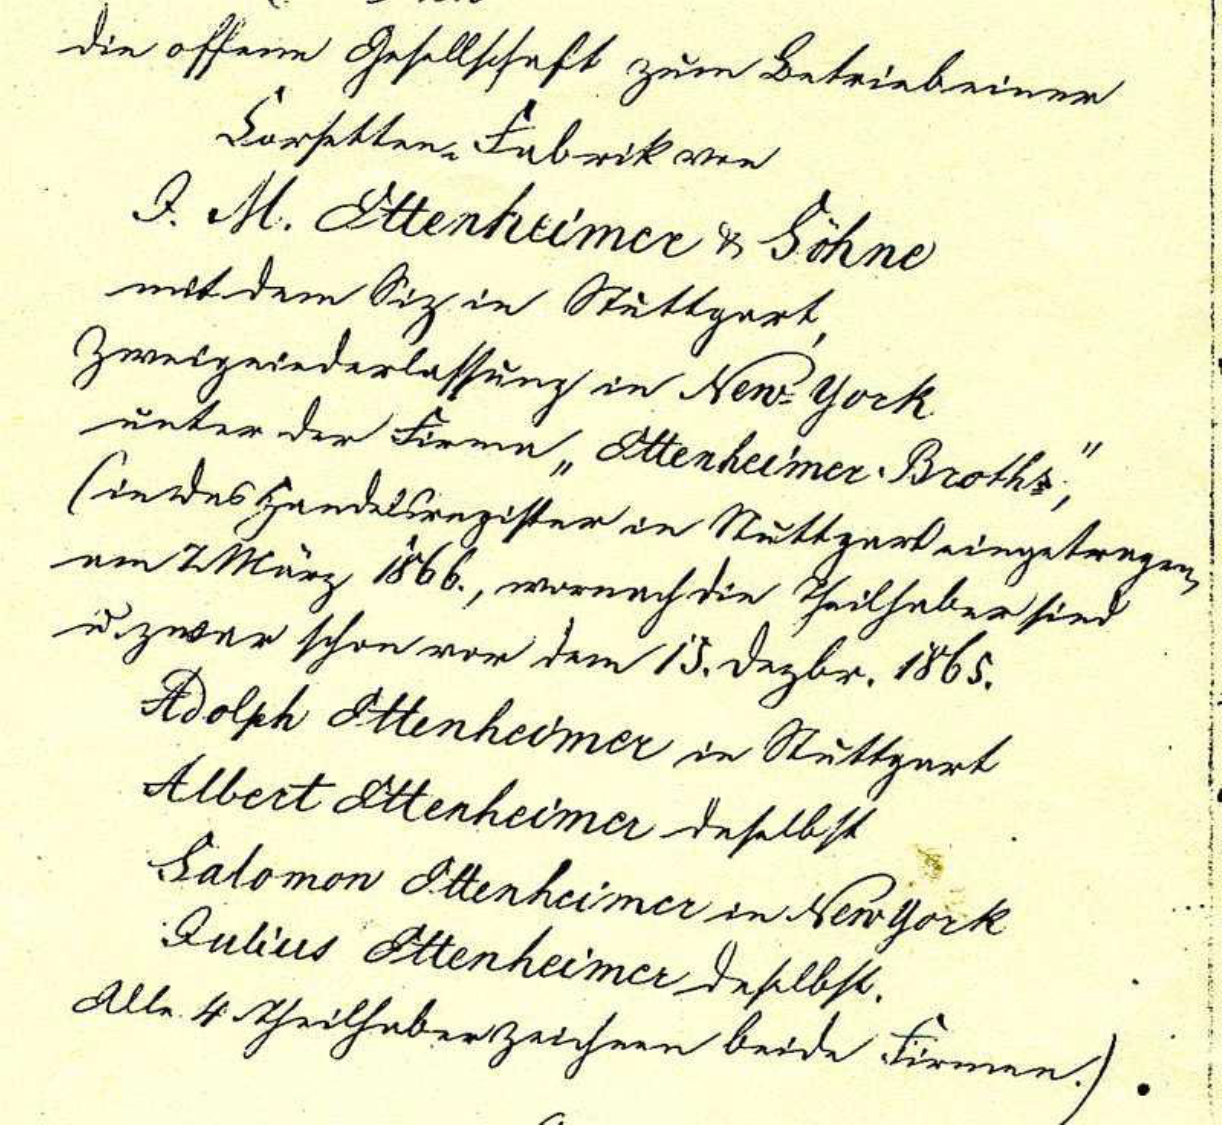 die offene Gesellschaft zum Betrieb einer
Corsetten-Fabrik von
J. M. Ettenheimer & Söhne
mit dem Siz in Stuttgart,
Zweigniederlassung in New-York
unter der Firma „Ettenheimer Broths,"
(in das Handelsregister in Stuttgart eingetragen
am 7. März 1866., wornach die Theilhaber sind
u. zwar schon vor dem 15. Dezbr. 1865.
Adolph Ettenheimer in Stuttgart
Albert Ettenheimer daselbst
Salomon Ettenheimer in New York
Julius Ettenheimer daselbst.
Alle 4 Theilhaber zeichnen beide Firmen.)